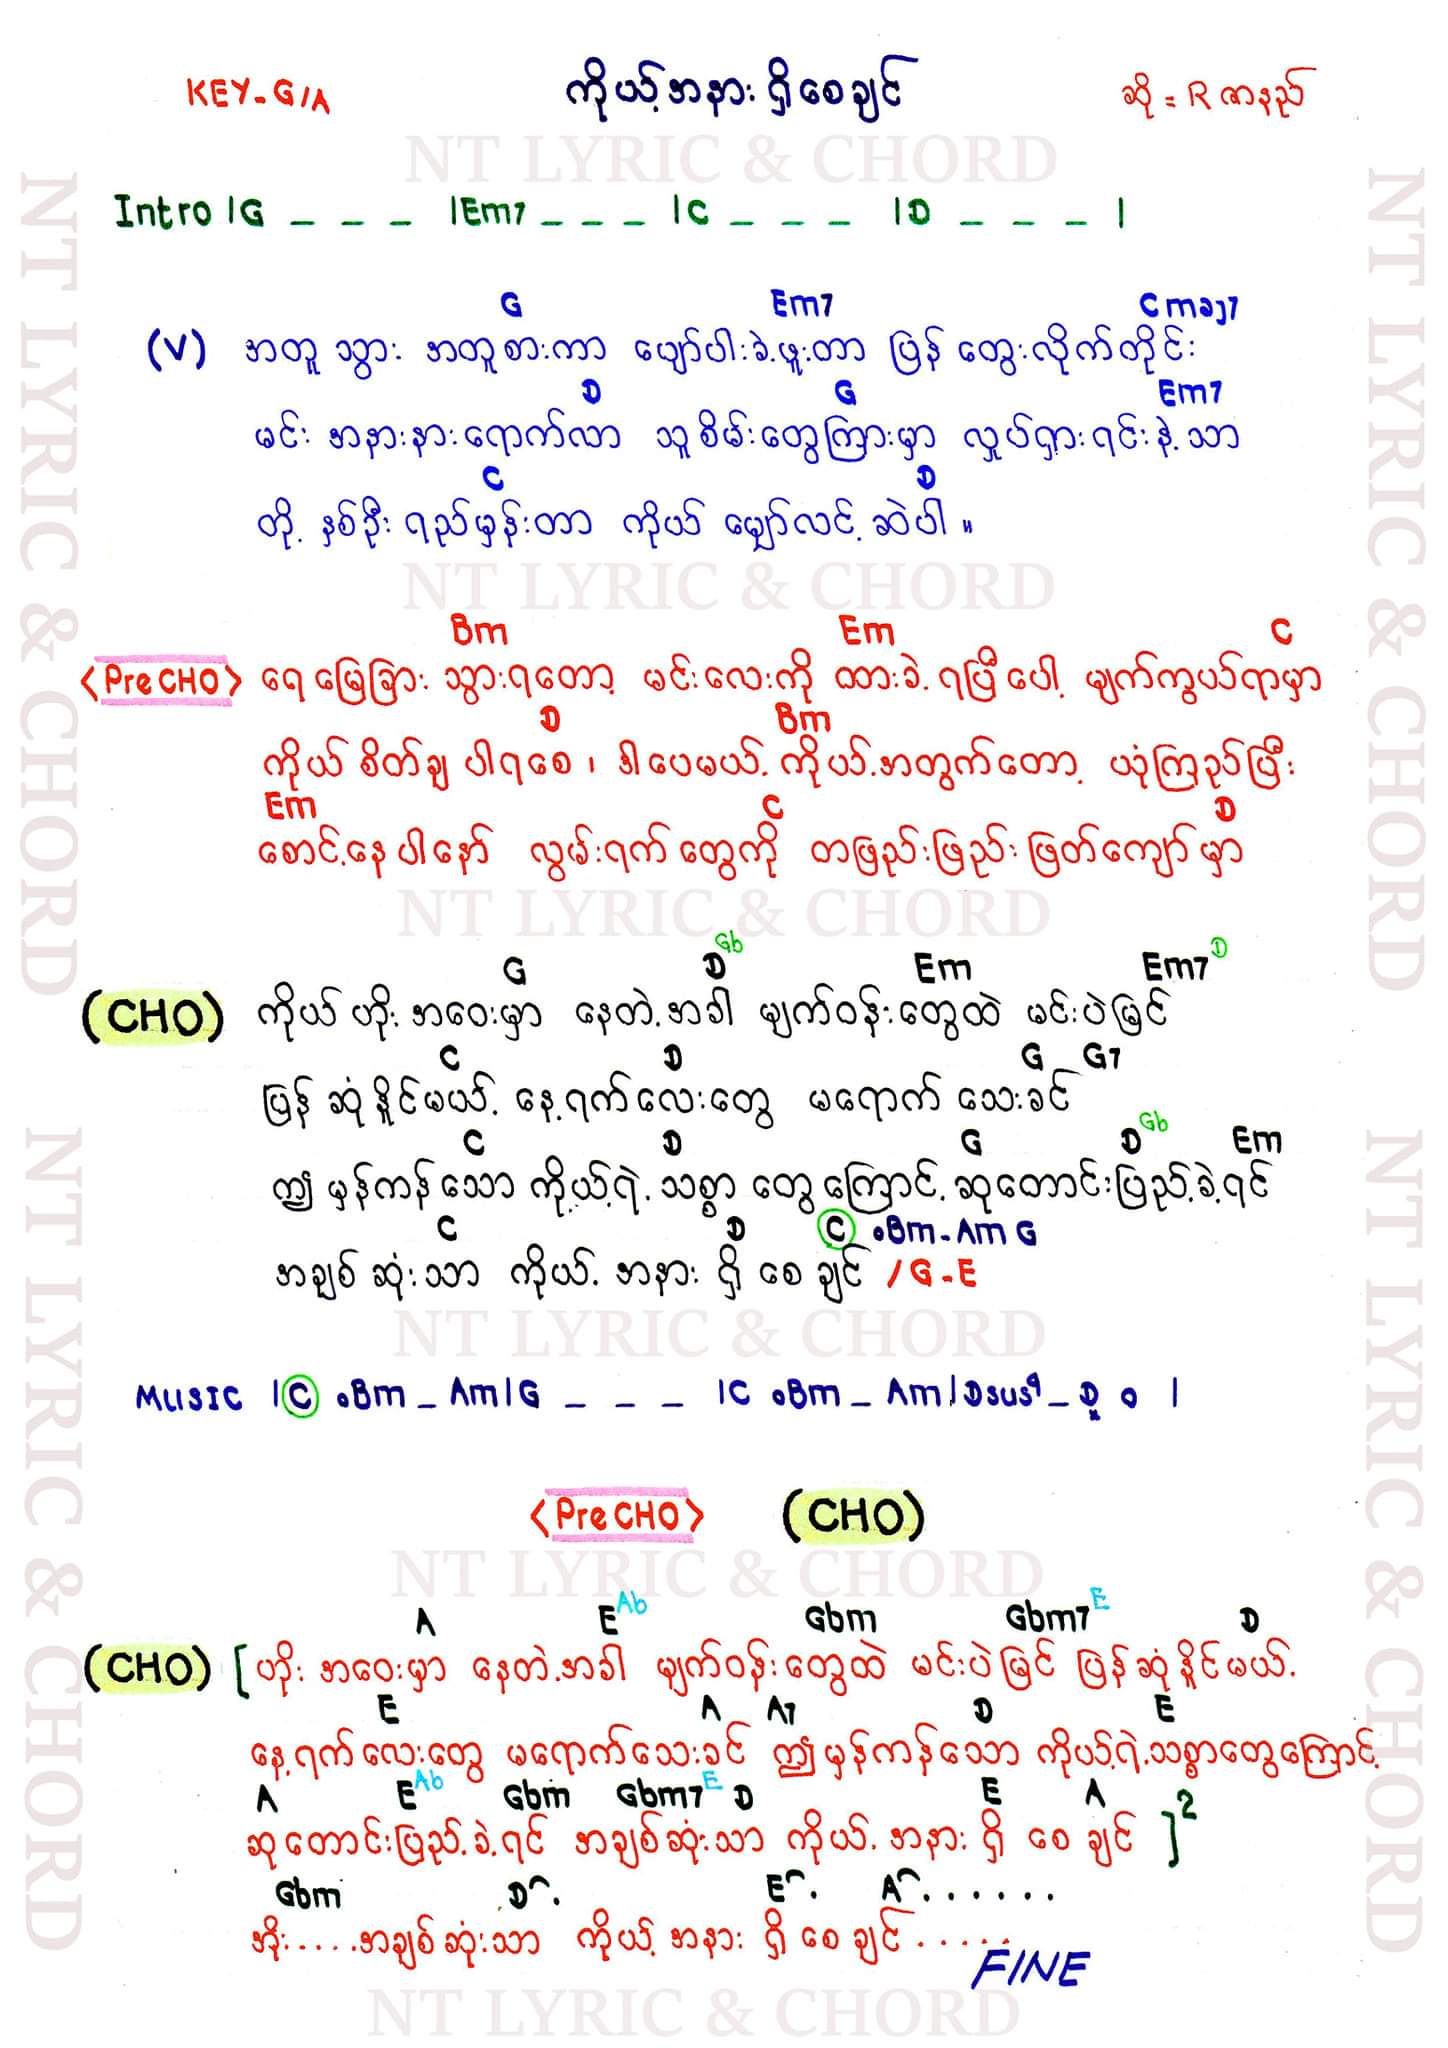 KEY-G/A ကိုယ့်အနားရှိစေချင် ဆို = R ဇာနည်
NT LYRIC & CHORD
Intro |G _ _ _ |Em7 _ _ _ |C _ _ _ |D _ _ _ |
G Em7 Cmaj7
(V) အတူသွား အတူစားကာ ပျော်ပါးခဲ့ဖူးတာ ပြန်တွေးလိုက်တိုင်း
D G Em7
မင်း အနားနားရောက်လာ သူစိမ်းတွေကြားမှာ လှုပ်ရှားရင်းနဲ့သာ
C D
တို့နှစ်ဦး ရည်မှန်းတာ ကိုယ် မျှော်လင့်ဆဲပါ။
NT LYRIC & CHORD
Bm Em C
<Pre CHO> ရေမြေခြား သွားရတော့ မင်းလေးကို ထားခဲ့ရပြီပေါ့ မျက်ကွယ်ရာမှာ
D Bm
ကိုယ်စိတ်ချပါရစေ၊ ဒါပေမယ့် ကိုယ့်အတွက်တော့ ယုံကြည်ပြီး
Em C D
စောင့်နေပါနော် လွမ်းရက်တွေကို တဖြည်းဖြည်းဖြတ်ကျော်မှာ
NT LYRIC & CHORD
G D Gb Em Em7 D
(CHO) ကိုယ်ဟိုးအဝေးမှာ နေတဲ့အခါ မျက်ဝန်းတွေထဲ မင်းပဲမြင်
C D G G7
ပြန်ဆုံနိုင်မယ့် နေ့ရက်လေးတွေ မရောက်သေးခင်
C D G D Gb Em
ဤမှန်ကန်သော ကိုယ့်ရဲ့သစ္စာတွေကြောင့် ဆုတောင်းပြည့်ခဲ့ရင်
C D C .Bm-Am G
အချစ်ဆုံးသာ ကိုယ့်အနားရှိစေချင် /G-E
NT LYRIC & CHORD
MUSIC |C .Bm _ Am|G _ _ _ |C .Bm _ Am|Dsus4 _ D . |
<Pre CHO> (CHO)
NT LYRIC & CHORD
A E Ab Gbm Gbm7 E D
(CHO) [ ဟိုးအဝေးမှာ နေတဲ့အခါ မျက်ဝန်းတွေထဲ မင်းပဲမြင် ပြန်ဆုံနိုင်မယ့်
E A A7 D E
နေ့ရက်လေးတွေ မရောက်သေးခင် ဤမှန်ကန်သော ကိုယ့်ရဲ့သစ္စာတွေကြောင့်
A E Ab Gbm Gbm7 E D E A
ဆုတောင်းပြည့်ခဲ့ရင် အချစ်ဆုံးသာ ကိုယ့်အနားရှိစေချင် ]2
Gbm D E A ......
အိုး....အချစ်ဆုံးသာ ကိုယ့်အနားရှိစေချင်.....
FINE
NT LYRIC & CHORD
NT LYRIC & CHORD
NT LYRIC & CHORD
NT LYRIC & CHORD
NT LYRIC & CHORD